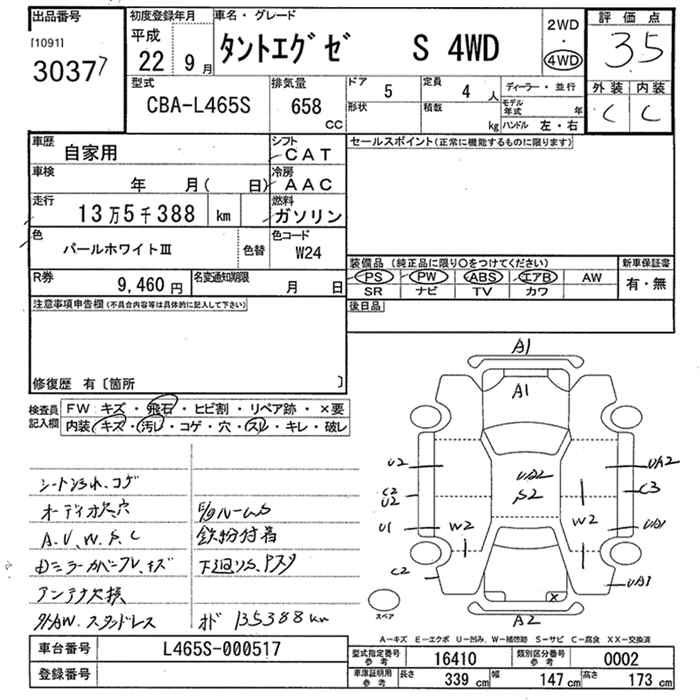 出品番号
[1091]
3037
初度登録年月
平成
22年 9月
車名・グレード
タントエグゼ S 4WD
2WD
・
4WD
評価点
35
外装 内装
C C
型式
CBA-L465S
排気量
658
CC
ドア
5
形状
定員
4人
積載
kg
ディーラー・並行
モデル年式 年
ハンドル 左・右
車歴
自家用
シフト
CAT
車検
年 月( 日)
冷房
AAC
走行
13万5千388 km
燃料
ガソリン
色
パールホワイトⅢ
色替
色コード
W24
R券
9,460円
名変通知期限
月 日
セールスポイント(正常に機能するものに限ります)
装備品 (純正品に限り○をつけてください)
PS PW ABS エアB AW
SR ナビ TV カワ
新車保証書
有・無
後日品
注意事項申告欄(不具合内容等は具体的に記入して下さい)
修復歴 有〔箇所 〕
検査員記入欄
FW:キズ・飛石・ヒビ割・リペア跡・×要
内装:キズ・汚レ・コゲ・穴・スレ・キレ・破レ
シートスレ、コゲ
オーディオ欠穴
アンテナ欠損
鉄粉付着
下廻りS、Pスタ
135388km
A1
A1
U2
U2
U1
C2
W2
W2
C3
UA1
A2
X
スペア
A-キズ E-エクボ U-凹み、W-補修跡 S-サビ C-腐食 XX-交換済
車台番号
L465S-000517
登録番号
型式指定番号
参考
16410
類別区分番号
参考
0002
車庫証明用
参考
長さ
339 cm
幅
147 cm
高さ
173 cm